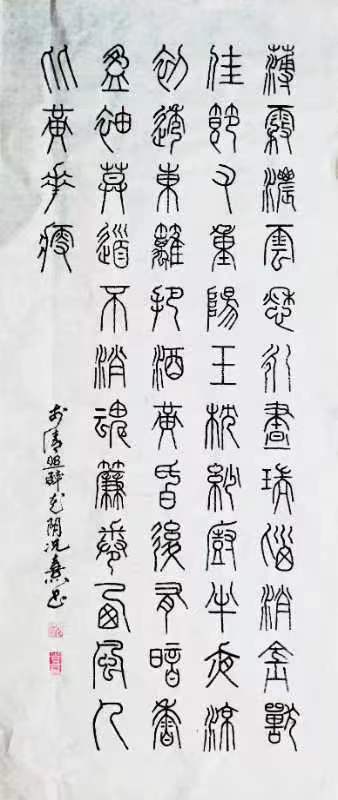 薄霧濃雲愁永晝瑞腦消金獸
佳節又重陽玉枕紗廚半夜涼
初透東籬把酒黃昏後有暗香
盈袖莫道不消魂簾卷西風人
比黃花瘦
李清照醉花阴况书